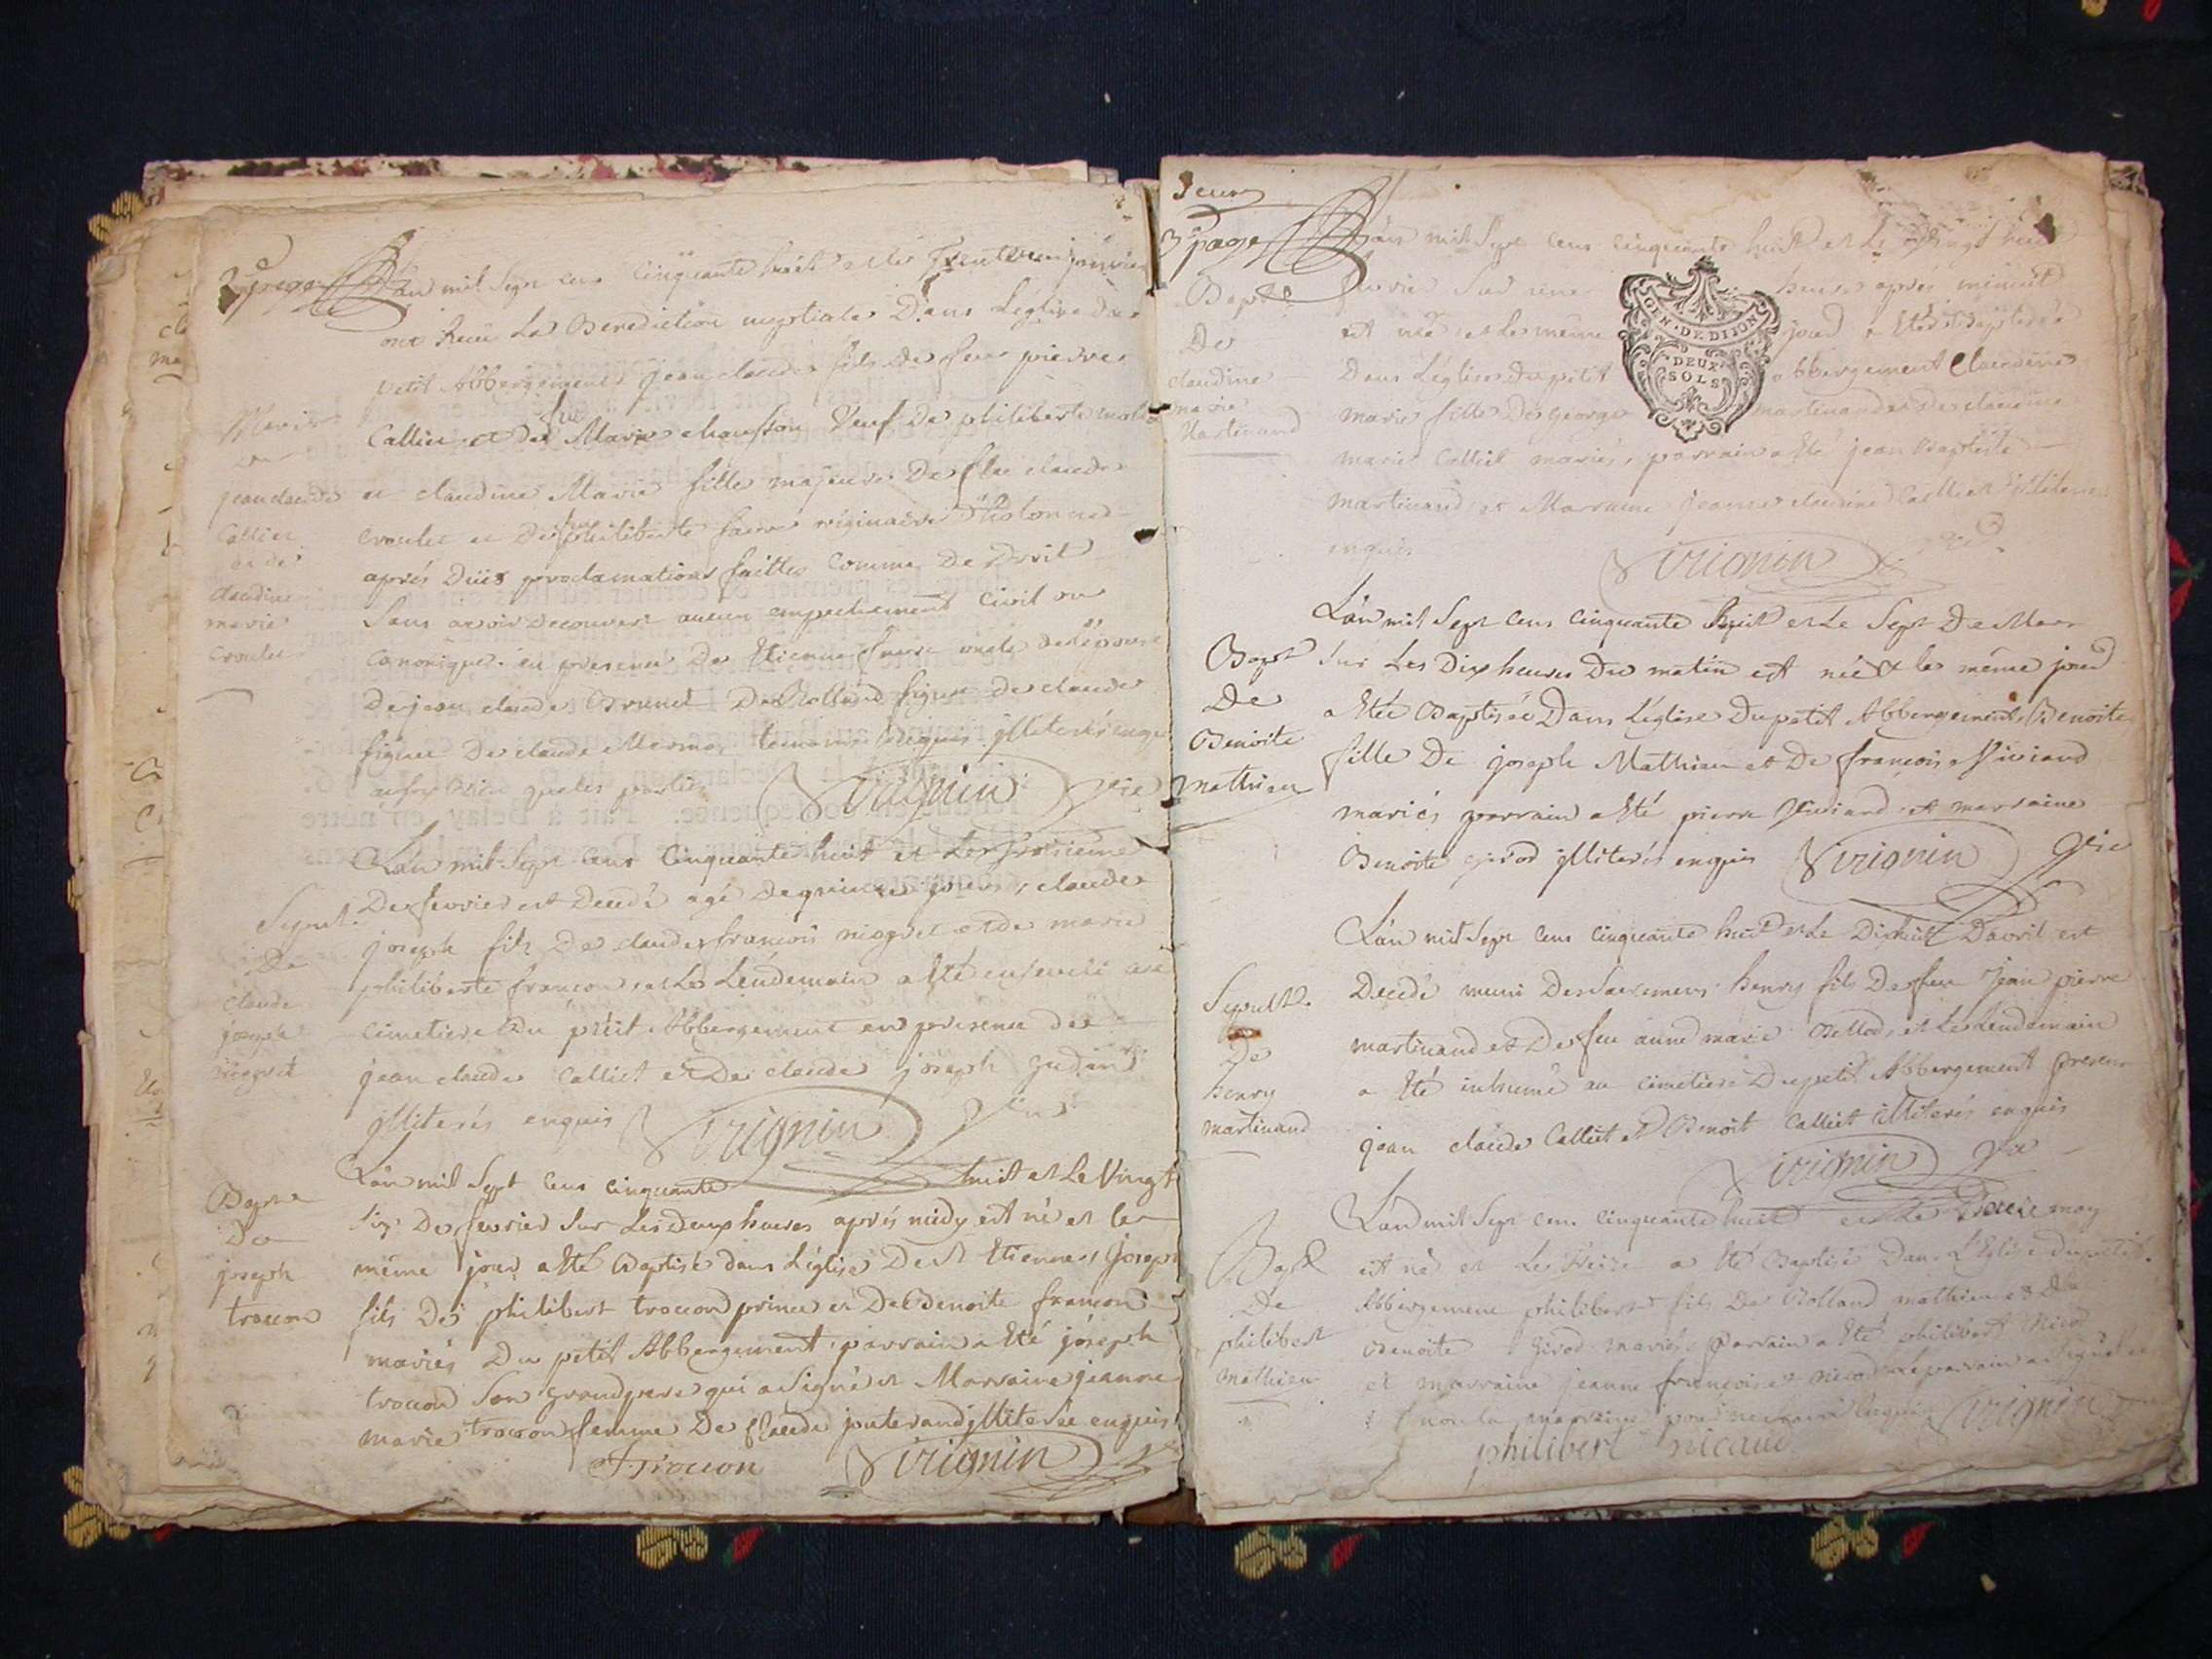 2e page
L'an mil sept cens cinquante huit et le trente un janvier
ont Recu La Benediction nuptiale Dans L'église du
petit Abbergement jean claude fils de feu pierre
Calliet et de feue Marie chausson Veuf De philiberte
et claudine Marie fille majeure De feu claude
croulet et De feue philiberte favre originaire
aprés Düës proclamations faittes Comme De Droit
Sans avoir Decouvert aucun empechement Civil ou
canonique en presence De Etienne favre oncle de l'épouse
De jean claude Brunet De Rolland
De claude Mermet temoins Requis jlliterés enquis
ainsy que les parties Virignin Vic
Mari
jean claude
Calliet
et de
claudine
marie
croulet
L'an mil Sept Cens Cinquante huit et Le troisieme
De fevrier est Decedé agé De quinze jours, claude
joseph fils De claude françois niogret et de marie
philiberte françon, et Le Lendemain a Eté enseveli au
cimetiere Du petit Abbergement en presence de
jean claude Calliet et De claude joseph
jlliterés enquis Virignin Vic
Sepult.
De
claude
joseph
niogret
L'an mil Sept Cens Cinquante huit et Le Vingt
Six De fevrier Sur Les Deux heures aprés midy est né et le
même jour a Eté Baptisé dans L'église De St Etienne, Joseph
fils De philibert troccon prince et De Benoite françon
mariés Du petit Abbergement, parrain a Eté joseph
troccon Son grand pere qui a Signé et Marraine jeanne
marie troccon femme De claude jlliterée enquis
J. Troccon Virignin Vic
Bapt.e
De
joseph
troccon
3e page
L'an mil Sept Cens Cinquante huit et Le Vingt huit
fevrier Sur une heure aprés minuit
est née et Le même jour a Eté Baptisée
Dans L'église Du petit Abbergement Claudine
marie fille De george martinand et de claudine
marie Calliet mariés, parrain a Eté jean Baptiste
martinand et Marraine jeanne claudine Calliet jlliterés
enquis Virignin Vic
GEN · DE DIJON
DEUX
SOLS
Bapt.e
De
claudine
marie
Martinand
L'an mil Sept Cens Cinquante huit et Le Sept De Mars
Sur Les Dix heures Du matin est née & le même jour
a Eté Baptisée Dans L'église Du petit Abbergement, Benoite
fille De joseph Mathieu et De françoise Viviand
mariés parrain a Eté pierre Viviand et marraine
Benoite girod jlliterés enquis Virignin Vic
Bapt
De
Benoite
Mathieu
L'an mil Sept Cens Cinquante huit et Le Dixhuit D'avril est
Decedé muni Des Sacremens henry fils De feu jean pierre
martinand et De feu anne marie Bellod, et Le Lendemain
a Eté inhumé au cimetiere Du petit Abbergement presens
jean claude Calliet et Benoit Calliet jlliterés enquis
Virignin Vic
Sepult.
De
henry
martinand
L'an mil Sept Cens Cinquante huit et Le Douze may
est né et Le treize a Eté Baptisé Dans L'Eglise Du petit
Abbergement philibert fils De Rolland mathieu & De
Benoite girod mariés, Parrain a Eté philibert Nicod
et marraine jeanne françoise nicod Le parrain a Signé et
non La marraine pour ne Sçavoir enquis Virignin
philibert nicaud
Bapt
De
philibert
mathieu